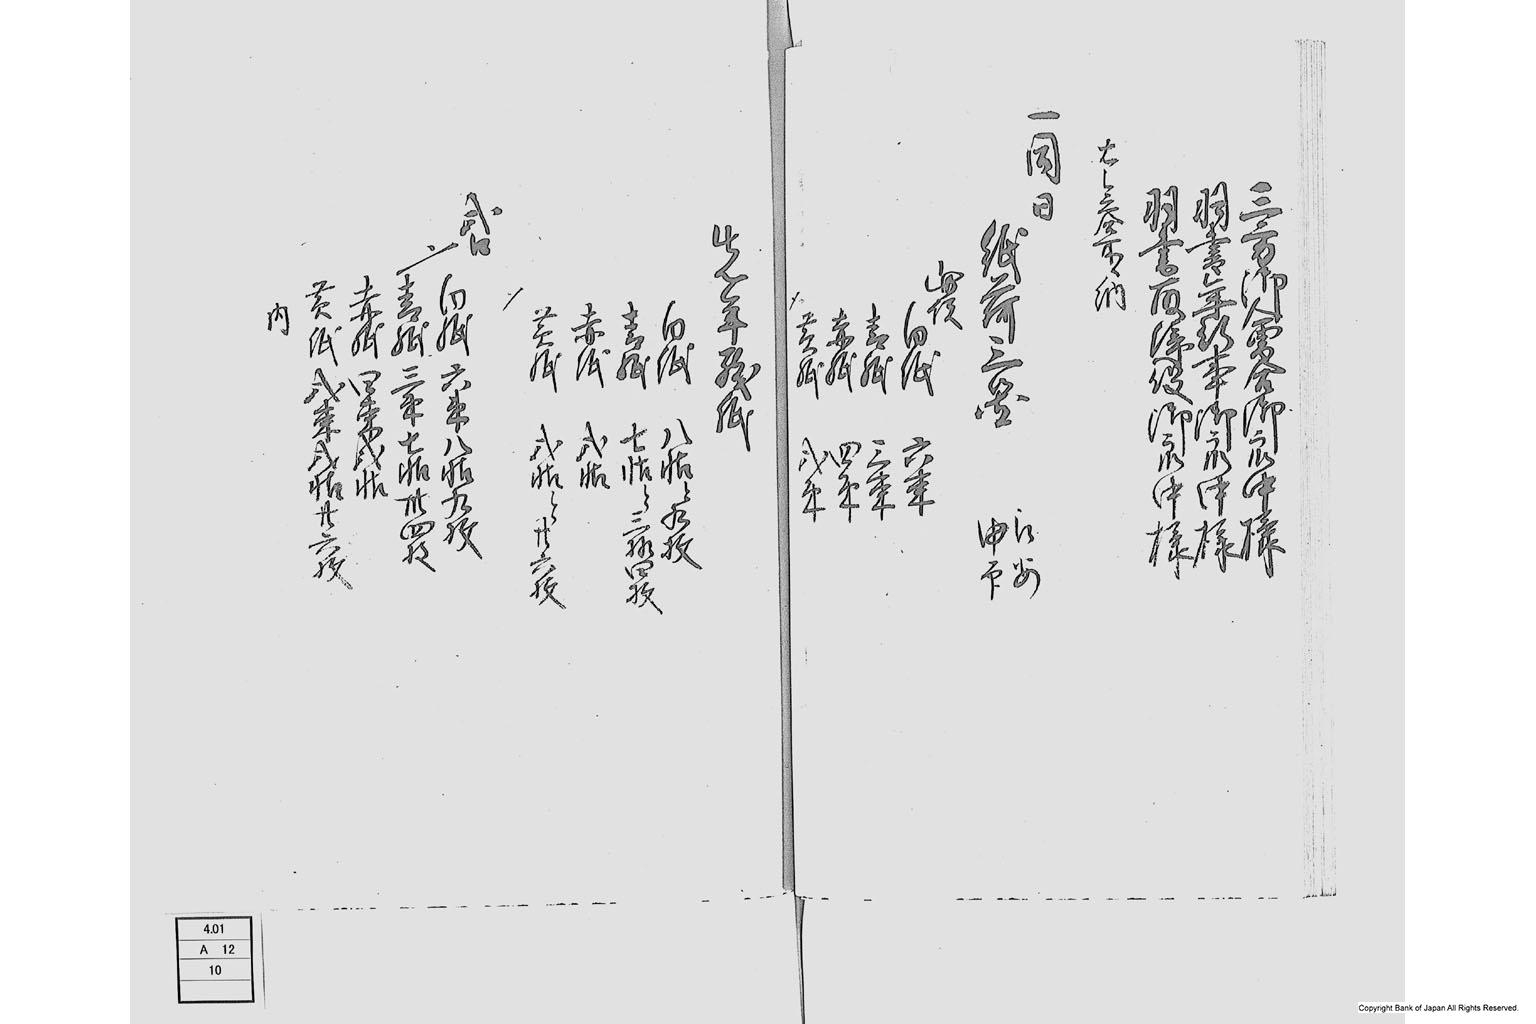 三方御会合御衆中様
羽書年行事御衆中様
羽書取締役御衆中様
一同日
紙荷三箇
白紙 六束
青紙 三束
赤紙 四束
黄紙 弐束
先年残紙
白紙 八帖と九枚
青紙 七帖と三拾四枚
赤紙 弐帖
黄紙 弐帖と廿六枚
〆
白紙 六束八帖九枚
青紙 三束七帖卅四枚
赤紙 四束弐帖
黄紙 弐束弐帖廿六枚
内
4.01
A 12
10
Copyright Bank of Japan All Rights Reserved.